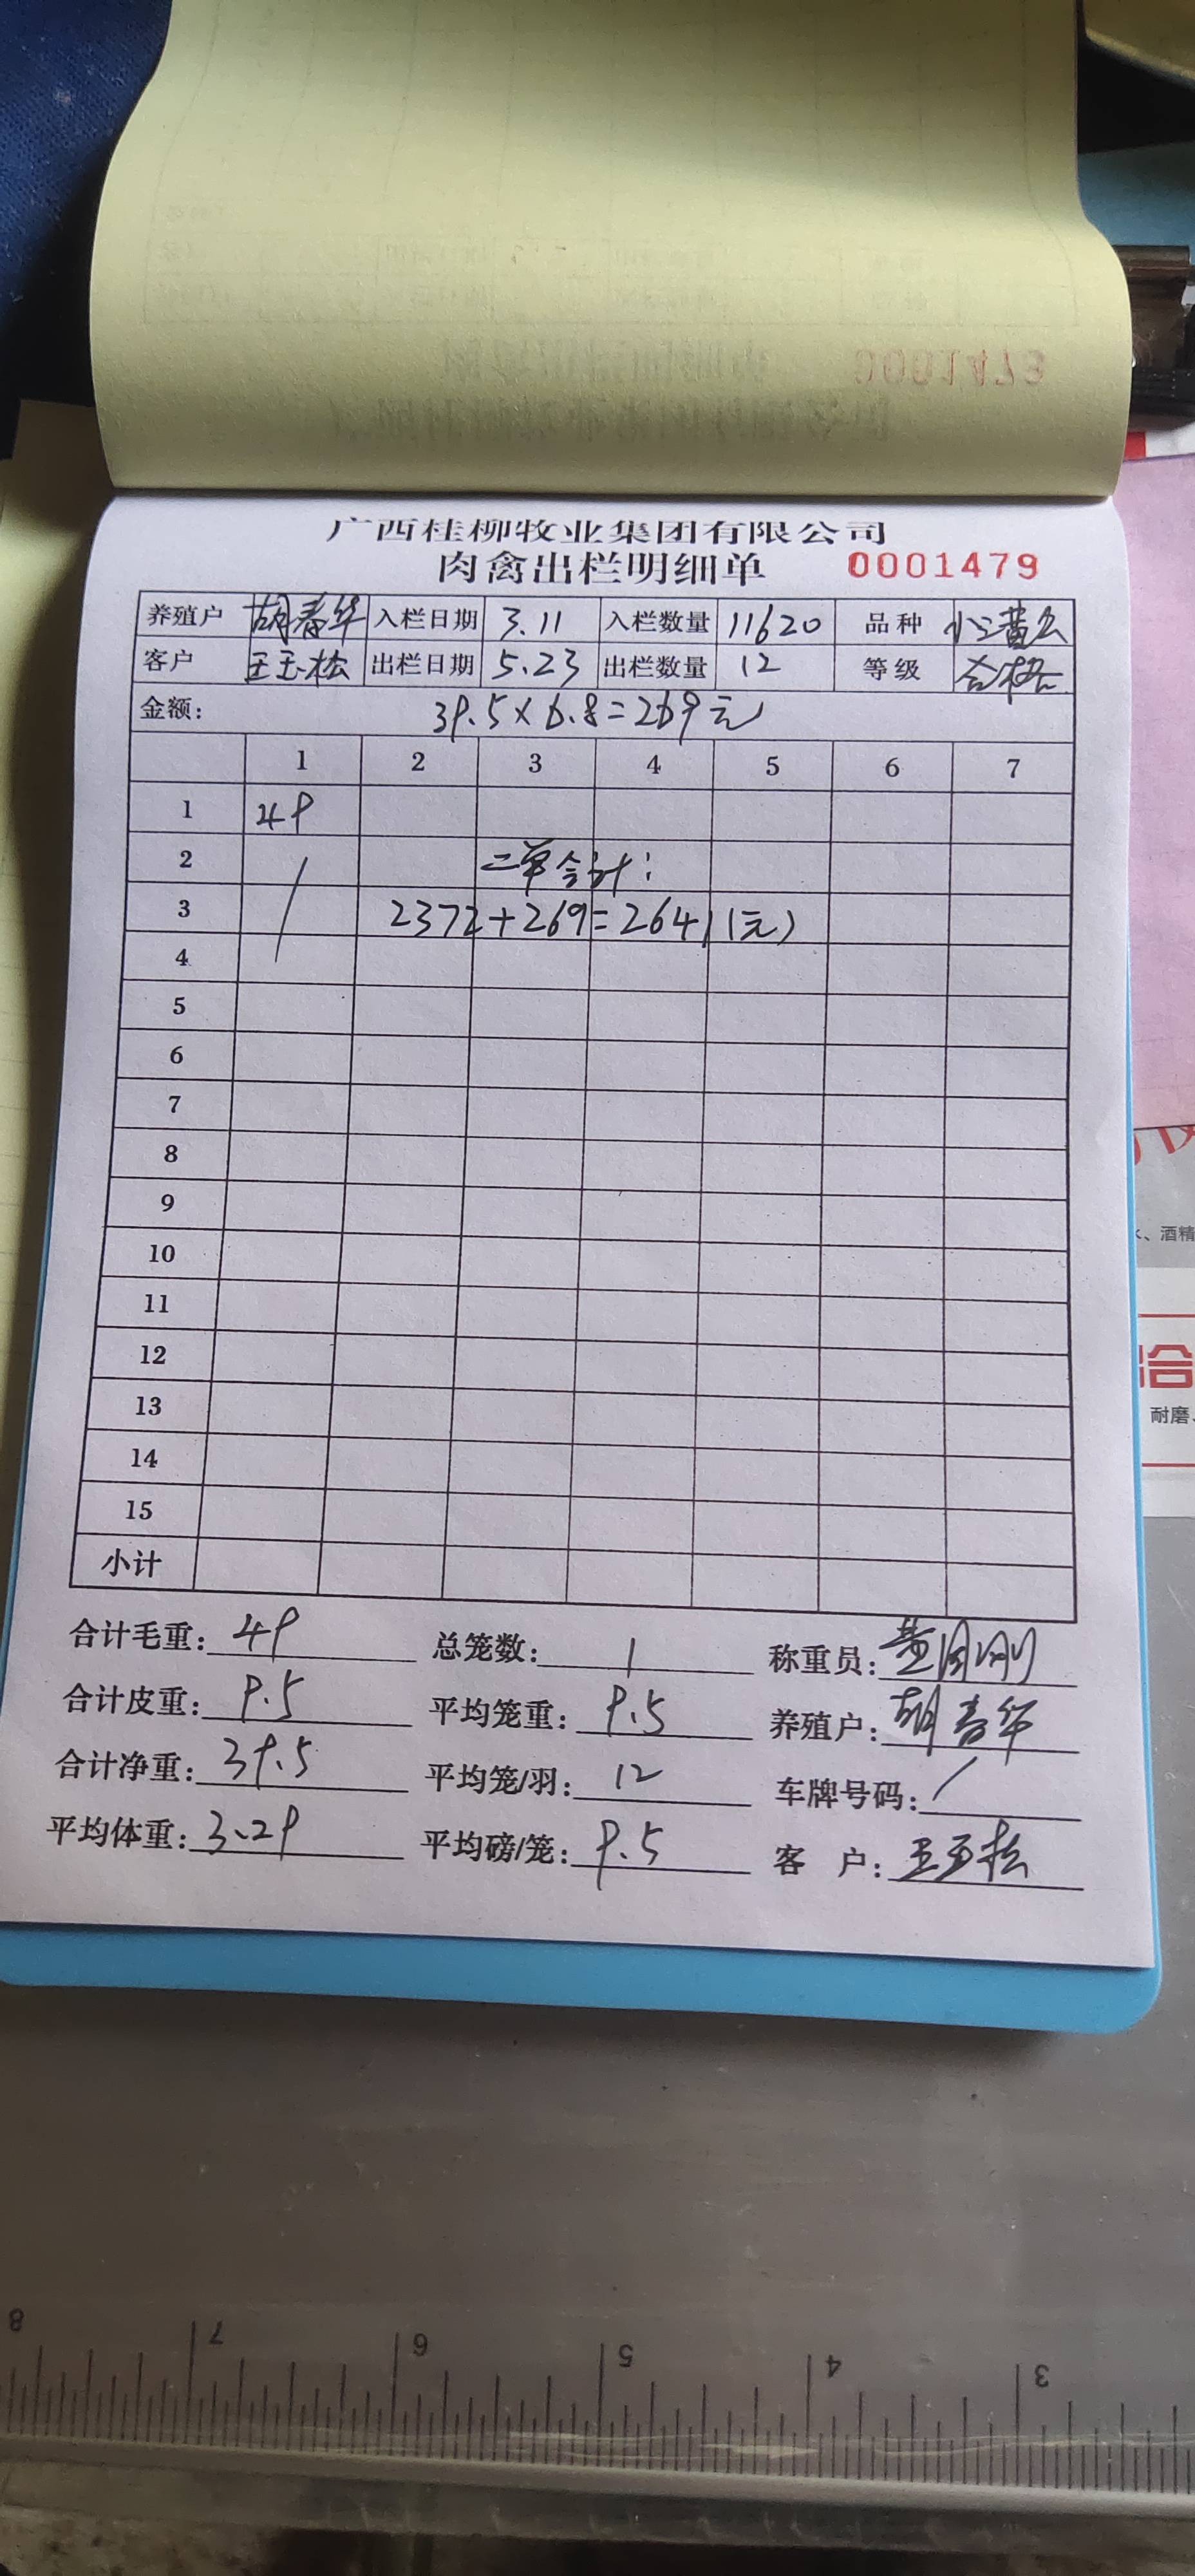 广西桂柳牧业集团有限公司
肉禽出栏明细单 0001479
养殖户 胡春华 入栏日期 3.11 入栏数量 11620 品种
客户 王玉松 出栏日期 5.23 出栏数量 12 等级 合格
金额: 39.5×6.8=269元
1 2 3 4 5 6 7
1 49
2 二单合计:
3 2372+269=2641(元)
4
5
6
7
8
9
10
11
12
13
14
15
小计
合计毛重: 49 总笼数: 1 称重员:
合计皮重: 9.5 平均笼重: 9.5 养殖户: 胡春华
合计净重: 39.5 平均笼/羽: 12 车牌号码: /
平均体重: 3.29 平均磅/笼: 9.5 客 户: 王玉松
、酒精
耐磨、
8 7 6 5 4 3